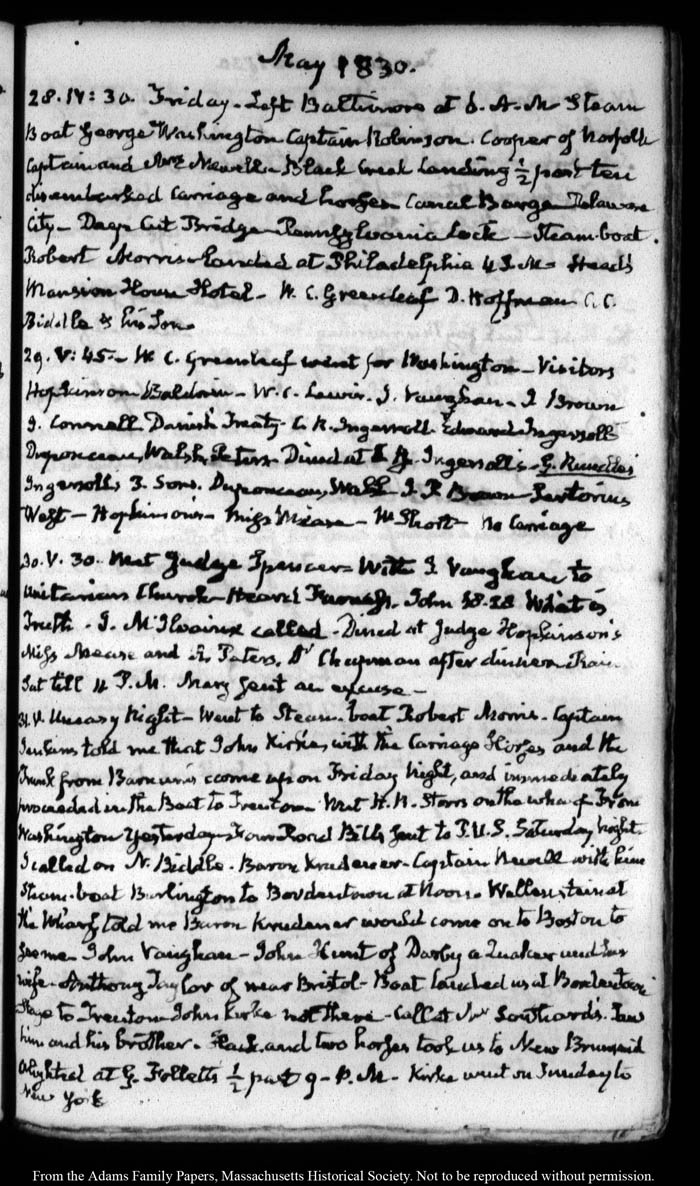 May 1830.
28. IV: 30. Friday. Left Baltimore at 6. A.M. Steam
Boat George Washington Captain Robinson. Cooper of Norfolk
Captain and Mrs Newell. Black Creek Landing ½ past ten
disembarked Carriage and horses Canal Barge Delaware
City — Deep Cut Bridge — Pennsylvania Lock — Steam-boat
Robert Morris — Landed at Philadelphia 4 P.M. Head's
Mansion House Hotel — W. C. Greenleaf D. Hoffman C. C.
Biddle & his Son.
29. V: 45. W. C. Greenleaf went for Washington — Visitors
Hopkinson Baldwin — W. C. Lewis. J. Vaughan — J Brown
J. Connell Danish Treaty C. R. Ingersoll Edward Ingersoll
Duponceau, Walsh, Peters. Dined at Ingersoll's —
Ingersoll's 3. Sons. Duponceau, Walsh J. P. Brown — Sartorius
West — Hopkinson's — Miss Mease — W Short — no Carriage
30. V. 30. Met Judge Spencer — With J. Vaughan to
Unitarian Church — Heard Furness. John 18.38 What is
Truth. J. McIlvaine called. Dined at Judge Hopkinson's
Miss Mease and R. Peters, Dr Chapman after dinner. Rain
Sat till 11 P.M. Mary sent an excuse —
31. V. Uneasy Night — Went to Steam-boat Robert Morris. Captain
Jenkins told me that John Kirke, with the Carriage Horses and the
Trunk from Barnum's came up on Friday Night, and immediately
proceeded in the Boat to Trenton. Met H. R. Storrs on the wharf from
Washington yesterday — Four Road Bills sent to P.U.S. Saturday Night
I called on N. Biddle. Baron Krudener — Captain Newell with him
Steam-boat Burlington to Bordentown at Noon. Wallenstein at
the Wharf told me Baron Krudener would come on to Boston to
see me. John Vaughan — John Hunt of Darby a Quaker and his
wife. Anthony Taylor of near Bristol — Boat landed us at Bordentown
Stage to Trenton John Kirke not there — Call at Mr Southard's. Saw
him and his brother. Hack and two horses took us to New Brunswick
Alighted at G. Follett's ½ past 9 — P.M. — Kirke went on Sunday to
New York
From the Adams Family Papers, Massachusetts Historical Society. Not to be reproduced without permission.